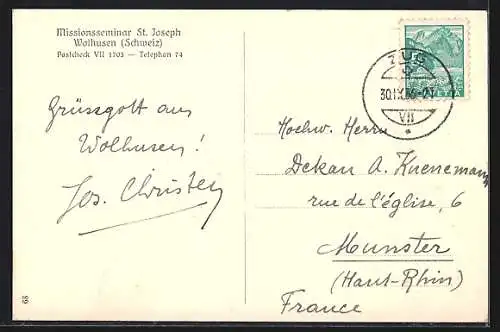 Missionsseminar St. Joseph
Wolhusen (Schweiz)
Postcheck VII 1703 — Telephon 74
ZUG
30.IX.36-21
VII
HELVETIA
Grüssgott aus
Wolhusen!
Jos. Christen
Hochw. Herrn
Dekan A. Kuenemann
rue de l'église, 6
Munster
(Haut-Rhin)
France